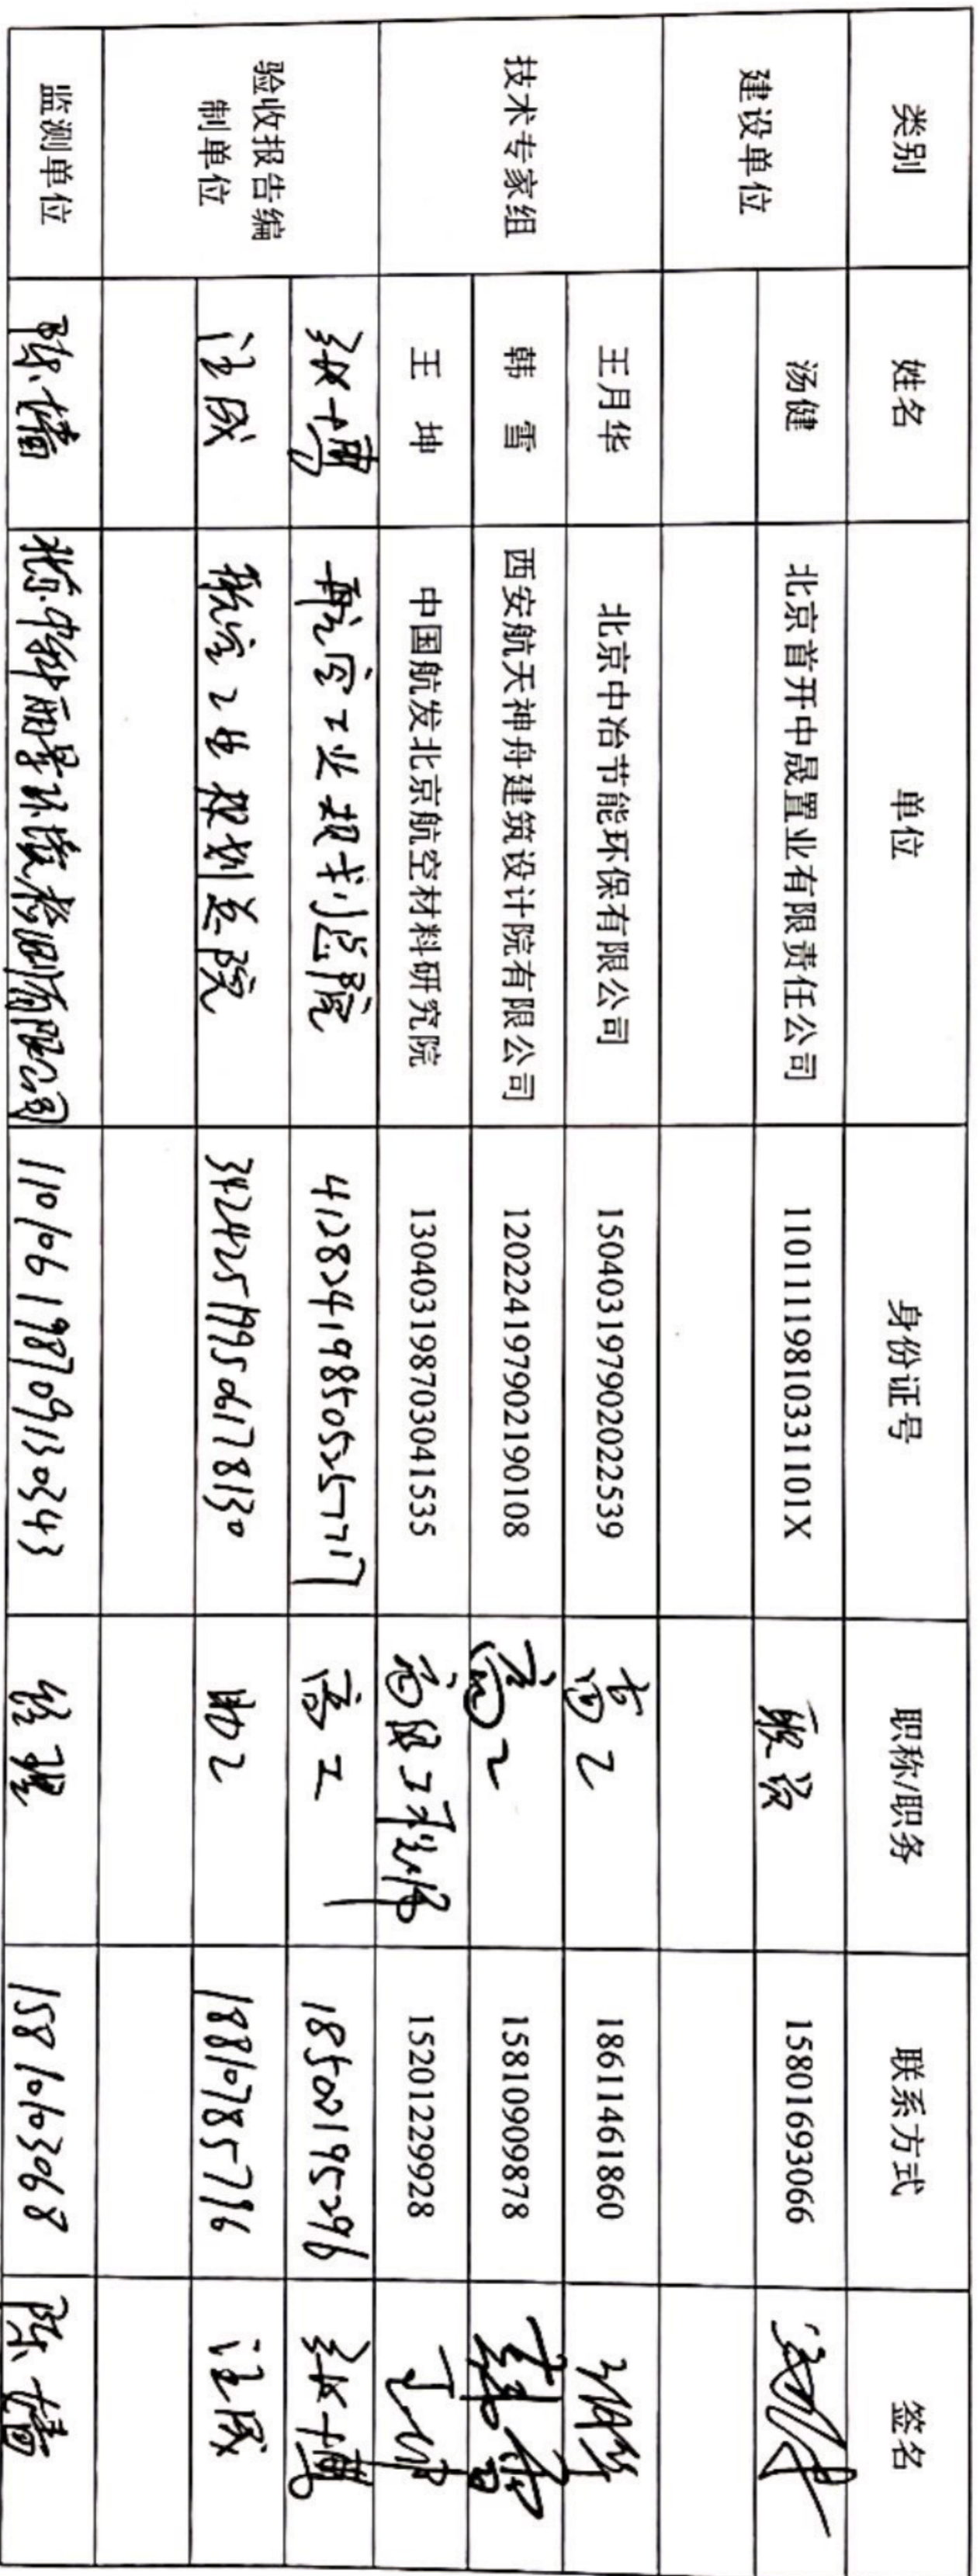 类别 姓名 单位 身份证号 职称/职务 联系方式 签名
建设单位 汤健 北京首开中晟置业有限责任公司 11011119810331101X 15801693066
技术专家组 王月华 北京中冶节能环保有限公司 150403197902022539 高工 18611461860 王月华
韩 雪 西安航天神舟建筑设计院有限公司 120224197902190108 高工 15810909878 韩雪
王 坤 中国航发北京航空材料研究院 130403198703041535 高级工程师 15201229928 王坤
验收报告编
制单位
航空工业规划总院 412824198505257717 高工 18500195296
汪成 航空工业规划总院 342425199506178130 助工 18810785796 汪成
监测单位 陈蔷 北京中科丽景环境检测有限公司 110106198709130343 经理 15810103068 陈蔷